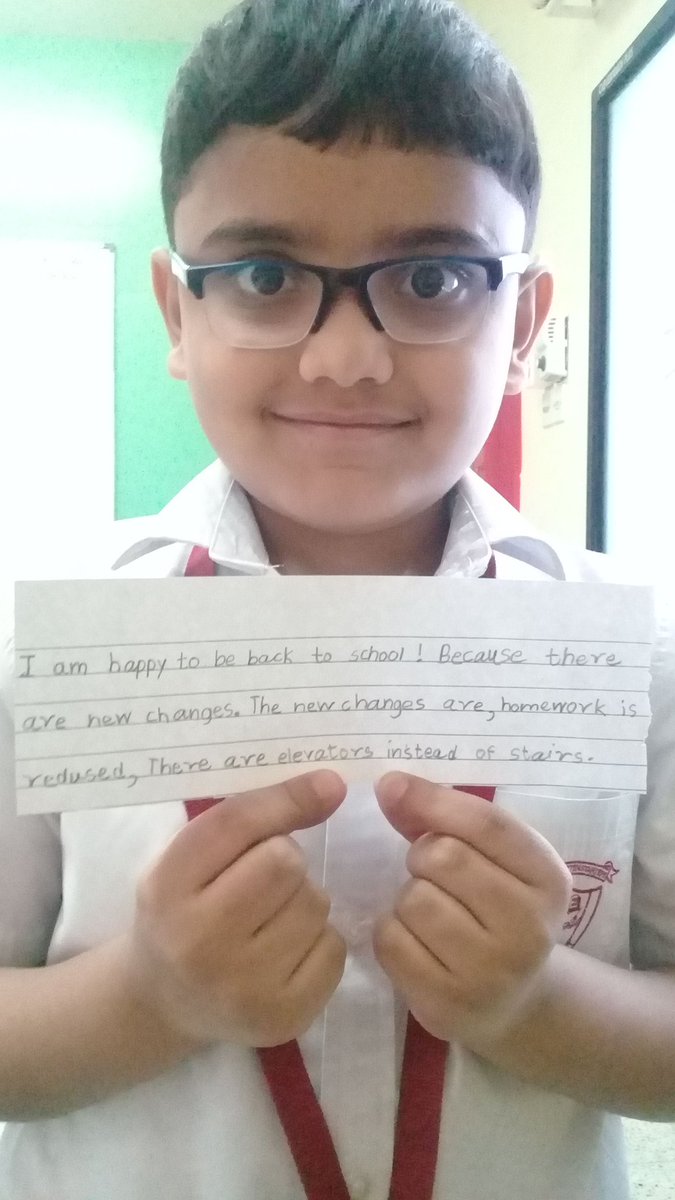 I am happy to be back to school! Because there
are new changes. The new changes are, homework is
redused, There are elevators instead of stairs.